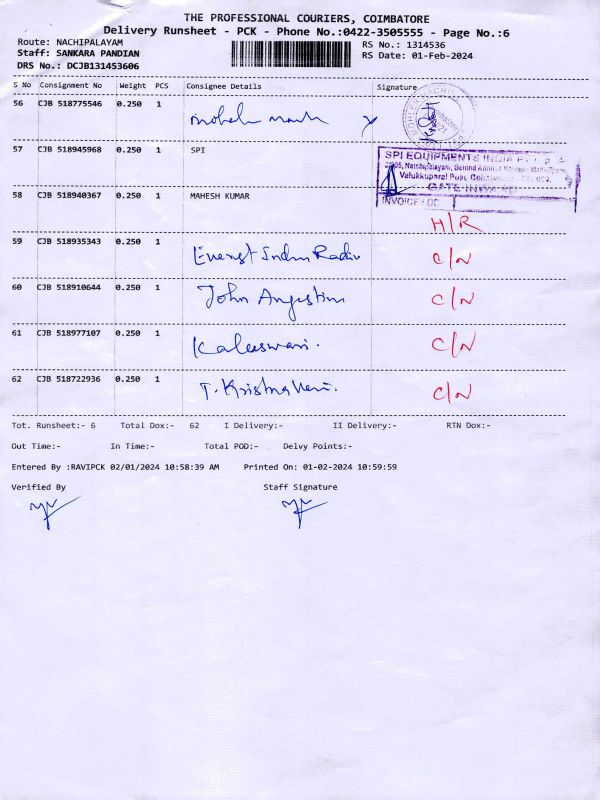 THE PROFESSIONAL COURIERS, COIMBATORE
Delivery Runsheet - PCK - Phone No.:0422-3505555 - Page No.:6
Route: NACHIPALAYAM
Staff: SANKARA PANDIAN
DRS No.: DCJB131453606
RS No.: 1314536
RS Date: 01-Feb-2024
S No Consignment No Weight PCS Consignee Details Signature
56 CJB 518775546 0.250 1
57 CJB 518945968 0.250 1 SPI
SPI EQUIPMENTS INDIA
58 CJB 518940367 0.250 1 MAHESH KUMAR
INVOICE / DC
H/R
59 CJB 518935343 0.250 1 C/N
60 CJB 518910644 0.250 1 John Angustin C/N
61 CJB 518977107 0.250 1 Kaleeswari. C/N
62 CJB 518722936 0.250 1 T. Krishnaveni. C/N
Tot. Runsheet:- 6 Total Dox:- 62 I Delivery:- II Delivery:- RTN Dox:-
Out Time:- In Time:- Total POD:- Delvy Points:-
Entered By :RAVIPCK 02/01/2024 10:58:39 AM Printed On: 01-02-2024 10:59:59
Verified By Staff Signature